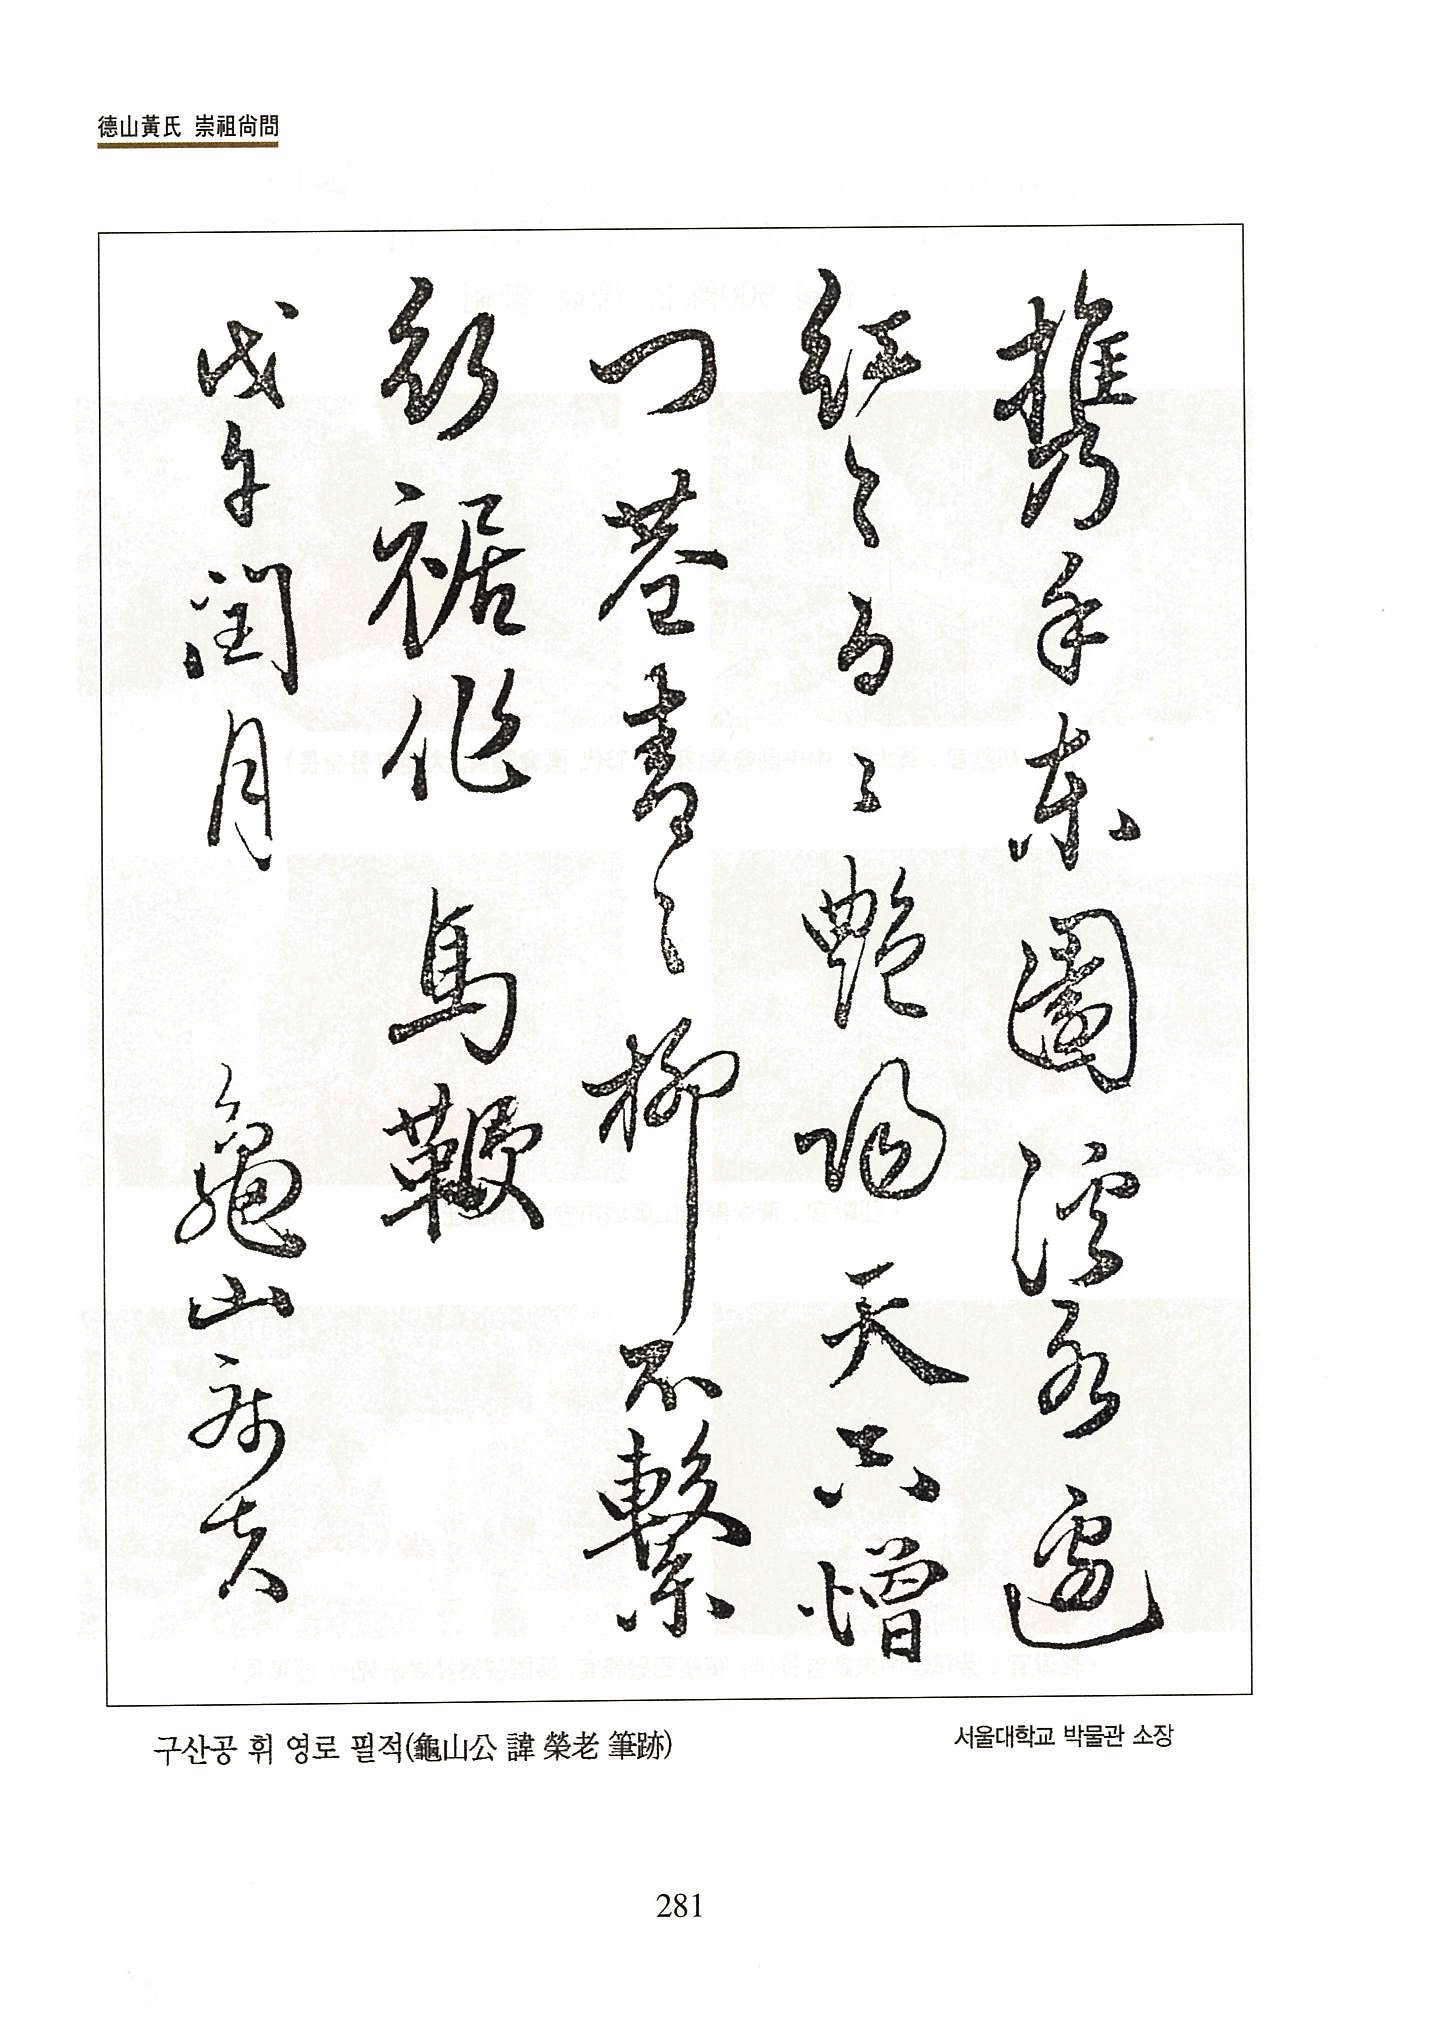 德山黃氏 崇祖尙問
携手東園溪水邊
紅々白々艶陽天只憎
門巷青々柳不繫
裾作馬鞭
戊午閏月 龜山病夫
구산공 휘 영로 필적(龜山公 諱 榮老 筆跡)
서울대학교 박물관 소장
281